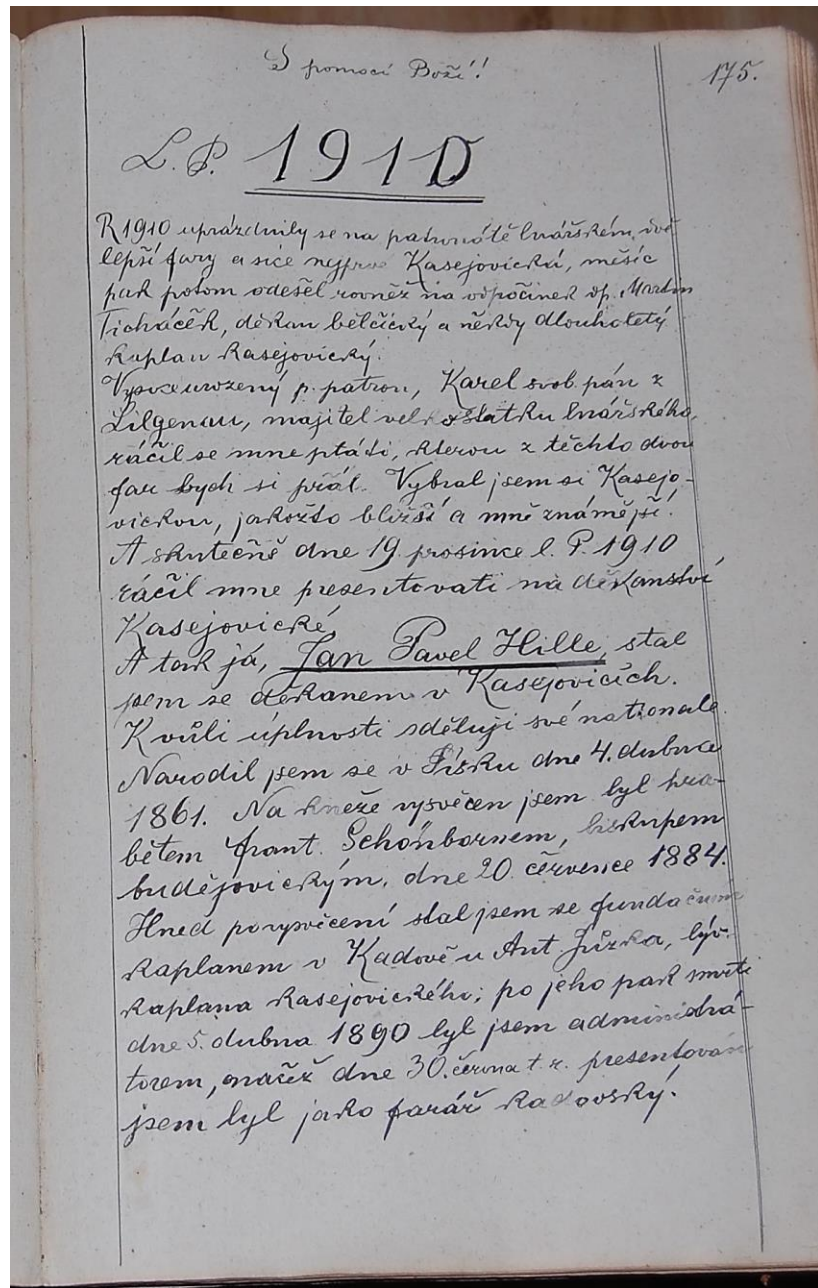 S pomocí Boží!
175.
L. P. 1910
R 1910 uprázdnily se na patronátě lnářském dvě
lepší fary a sice nejprve Kasejovická, měsíc
pak potom odešel rovněž na odpočinek dp. Martin
Ticháček, děkan bělčický a někdy dlouholetý
kaplan kasejovický.
Vysoceurozený p. patron, Karel svob. pán z
Lilgenau, majitel velkostatku lnářského,
ráčil se mne ptáti, kterou z těchto dvou
far bych si přál. Vybral jsem si Kasejo-
vickou, jakožto bližší a mně známější.
A skutečně dne 19. prosince l. P. 1910
ráčil mne presentovati na děkanství
Kasejovické.
A tak já, Jan Pavel Hille, stal
jsem se děkanem v Kasejovicích.
K vůli úplnosti sděluji své nationale.
Narodil jsem se v Písku dne 4. dubna
1861. Na kněze vysvěcen jsem byl hra-
bětem Frant. Schönbornem, biskupem
budějovickým, dne 20. července 1884.
Hned po vysvěcení stal jsem se fundačním
kaplanem v Kadově u Ant. Jůzka, býv.
kaplana kasejovického; po jeho pak smrti
dne 5. dubna 1890 byl jsem administrá-
torem, načež dne 30. června t. r. presentován
jsem byl jako farář kadovský.